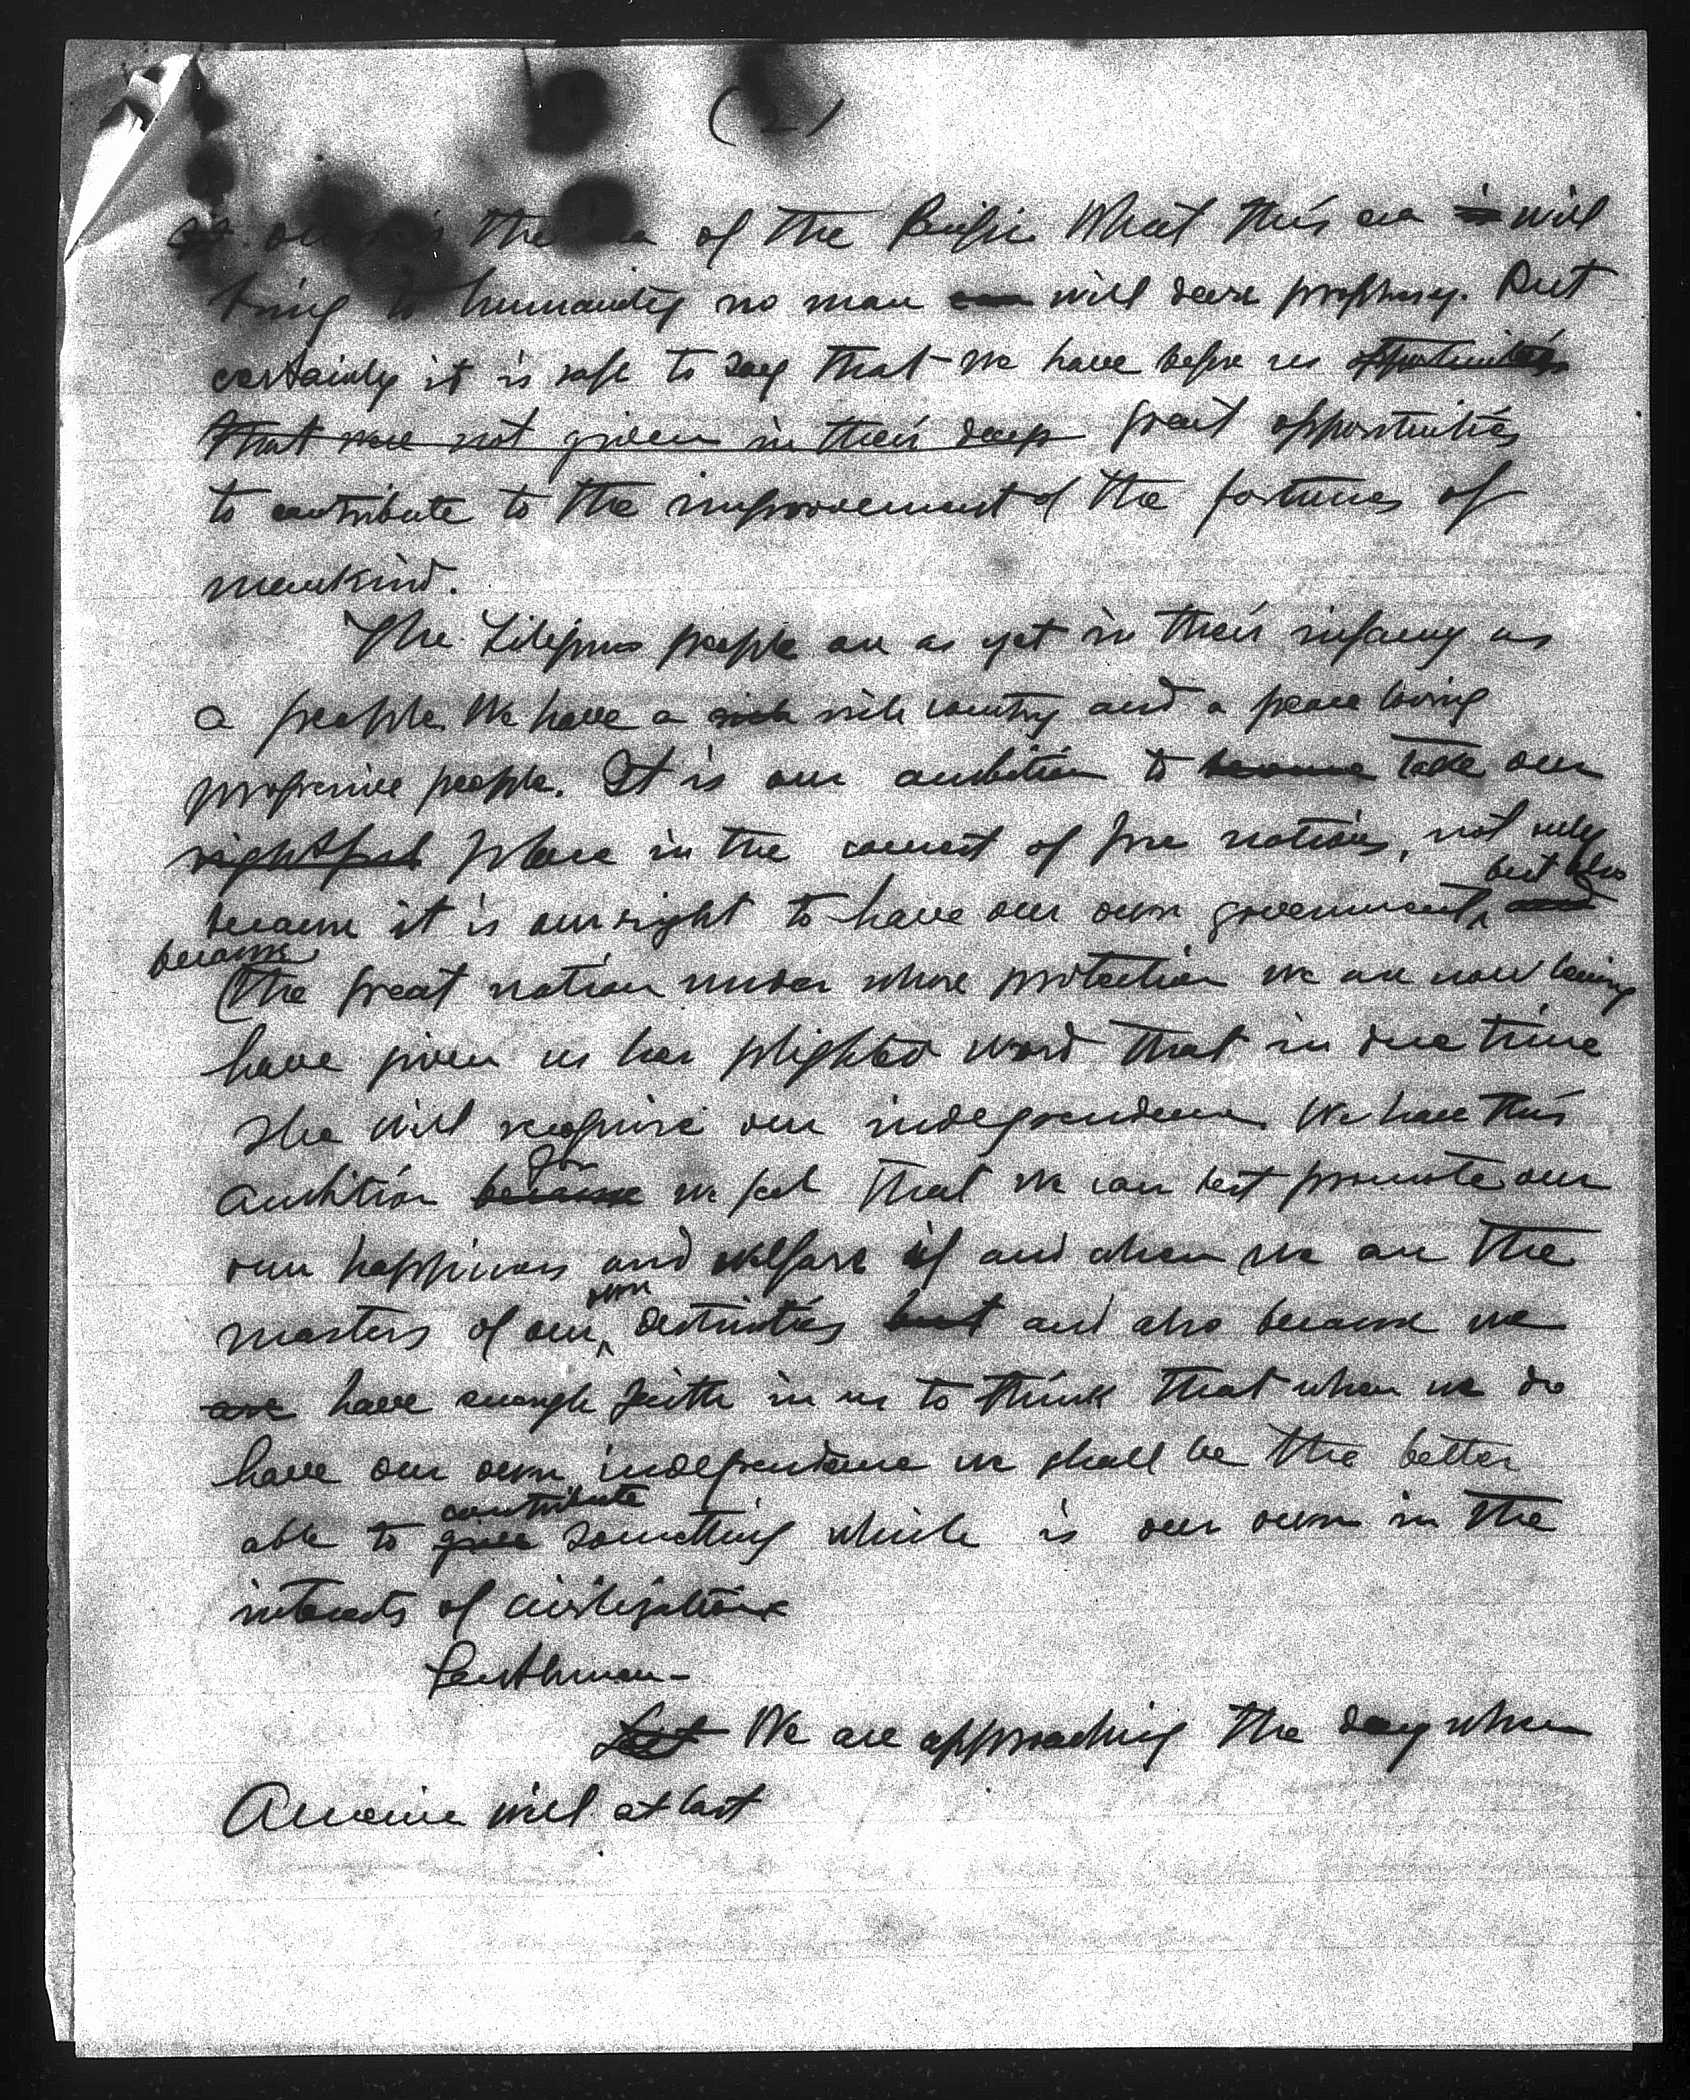 (2)
is the era of the Pacific. What this era is will
bring to humanity no man can will dare prophesy. But
certainly it is safe to say that we have before us opportunities
that were not given in their days great opportunities
to contribute to the improvement of the fortunes of
mankind.
The Filipino people are as yet in their infancy as
a people. We have a rich rich country and a peace loving
progressive people. It is our ambition to become take our
rightful place in the concert of free nations, not only
because it is our right to have our own government, but also and
because the great nation under whose protection we are now living
have given us her plighted word that in due time
she will recognize our independence. We have this
ambition because for we feel that we can best promote our
own happiness and welfare if and when we are the
masters of our own destinies but and also because we
are have enough faith in us to think that when we do
have our own independence we shall be the better
able to give contribute something which is our own in the
interests of civilization
Gentlemen-
Let We are approaching the day when
America will at last